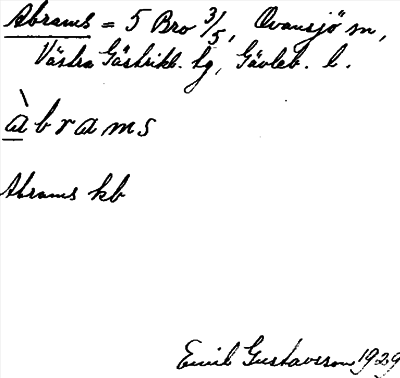 Abrams = 5 Bro 3/5, Ovansjö sn,
Västra Gästrikl. tg, Gävleb. l.
àbrams
Abrams kb
Emil Gustavsson 1929